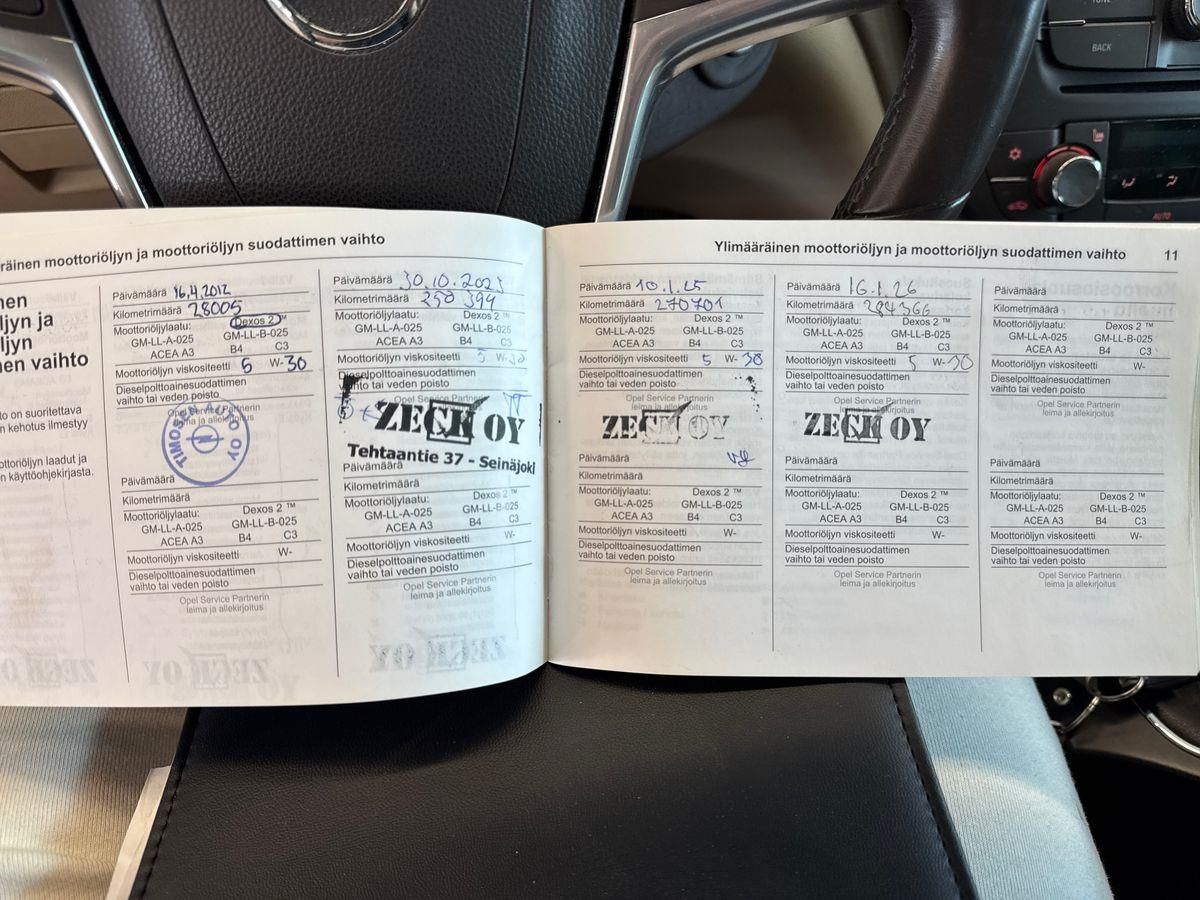 BACK
AUTO
räinen moottoriöljyn ja moottoriöljyn suodattimen vaihto
nen
ljyn ja
ljyn
nen vaihto
to on suoritettava
n kehotus ilmestyy
ottoriöljyn laadut ja
n käyttöohjekirjasta.
Päivämäärä 16.4.2012
Kilometrimäärä 28005
Moottoriöljylaatu: Dexos 2 ™
GM-LL-A-025 GM-LL-B-025
ACEA A3 B4 C3
Moottoriöljyn viskositeetti 5 W-30
Dieselpolttoainesuodattimen
vaihto tai veden poisto
Opel Service Partnerin
leima ja allekirjoitus
TIMOSEN AUTO OY
Päivämäärä
Kilometrimäärä
Moottoriöljylaatu: Dexos 2 ™
GM-LL-A-025 GM-LL-B-025
ACEA A3 B4 C3
Moottoriöljyn viskositeetti W-
Dieselpolttoainesuodattimen
vaihto tai veden poisto
Opel Service Partnerin
leima ja allekirjoitus
Päivämäärä 30.10.2023
Kilometrimäärä 250 394
Moottoriöljylaatu: Dexos 2 ™
GM-LL-A-025 GM-LL-B-025
ACEA A3 B4 C3
Moottoriöljyn viskositeetti 5 W-30
Dieselpolttoainesuodattimen
vaihto tai veden poisto
Opel Service Partnerin
ZECK OY
Tehtaantie 37 - Seinäjoki
Päivämäärä
Kilometrimäärä
Moottoriöljylaatu: Dexos 2 ™
GM-LL-A-025 GM-LL-B-025
ACEA A3 B4 C3
Moottoriöljyn viskositeetti W-
Dieselpolttoainesuodattimen
vaihto tai veden poisto
Opel Service Partnerin
leima ja allekirjoitus
Ylimääräinen moottoriöljyn ja moottoriöljyn suodattimen vaihto 11
Päivämäärä 10.1.25
Kilometrimäärä 270701
Moottoriöljylaatu: Dexos 2 ™
GM-LL-A-025 GM-LL-B-025
ACEA A3 B4 C3
Moottoriöljyn viskositeetti 5 W-30
Dieselpolttoainesuodattimen
vaihto tai veden poisto
Opel Service Partnerin
leima ja allekirjoitus
ZECK OY
Päivämäärä
Kilometrimäärä
Moottoriöljylaatu: Dexos 2 ™
GM-LL-A-025 GM-LL-B-025
ACEA A3 B4 C3
Moottoriöljyn viskositeetti W-
Dieselpolttoainesuodattimen
vaihto tai veden poisto
Opel Service Partnerin
leima ja allekirjoitus
Päivämäärä 16.1.26
Kilometrimäärä 284366
Moottoriöljylaatu: Dexos 2 ™
GM-LL-A-025 GM-LL-B-025
ACEA A3 B4 C3
Moottoriöljyn viskositeetti 5 W-30
Dieselpolttoainesuodattimen
vaihto tai veden poisto
Opel Service Partnerin
leima ja allekirjoitus
ZECK OY
Päivämäärä
Kilometrimäärä
Moottoriöljylaatu: Dexos 2 ™
GM-LL-A-025 GM-LL-B-025
ACEA A3 B4 C3
Moottoriöljyn viskositeetti W-
Dieselpolttoainesuodattimen
vaihto tai veden poisto
Opel Service Partnerin
leima ja allekirjoitus
Päivämäärä
Kilometrimäärä
Moottoriöljylaatu: Dexos 2 ™
GM-LL-A-025 GM-LL-B-025
ACEA A3 B4 C3
Moottoriöljyn viskositeetti W-
Dieselpolttoainesuodattimen
vaihto tai veden poisto
Opel Service Partnerin
leima ja allekirjoitus
Päivämäärä
Kilometrimäärä
Moottoriöljylaatu: Dexos 2 ™
GM-LL-A-025 GM-LL-B-025
ACEA A3 B4 C3
Moottoriöljyn viskositeetti W-
Dieselpolttoainesuodattimen
vaihto tai veden poisto
Opel Service Partnerin
leima ja allekirjoitus